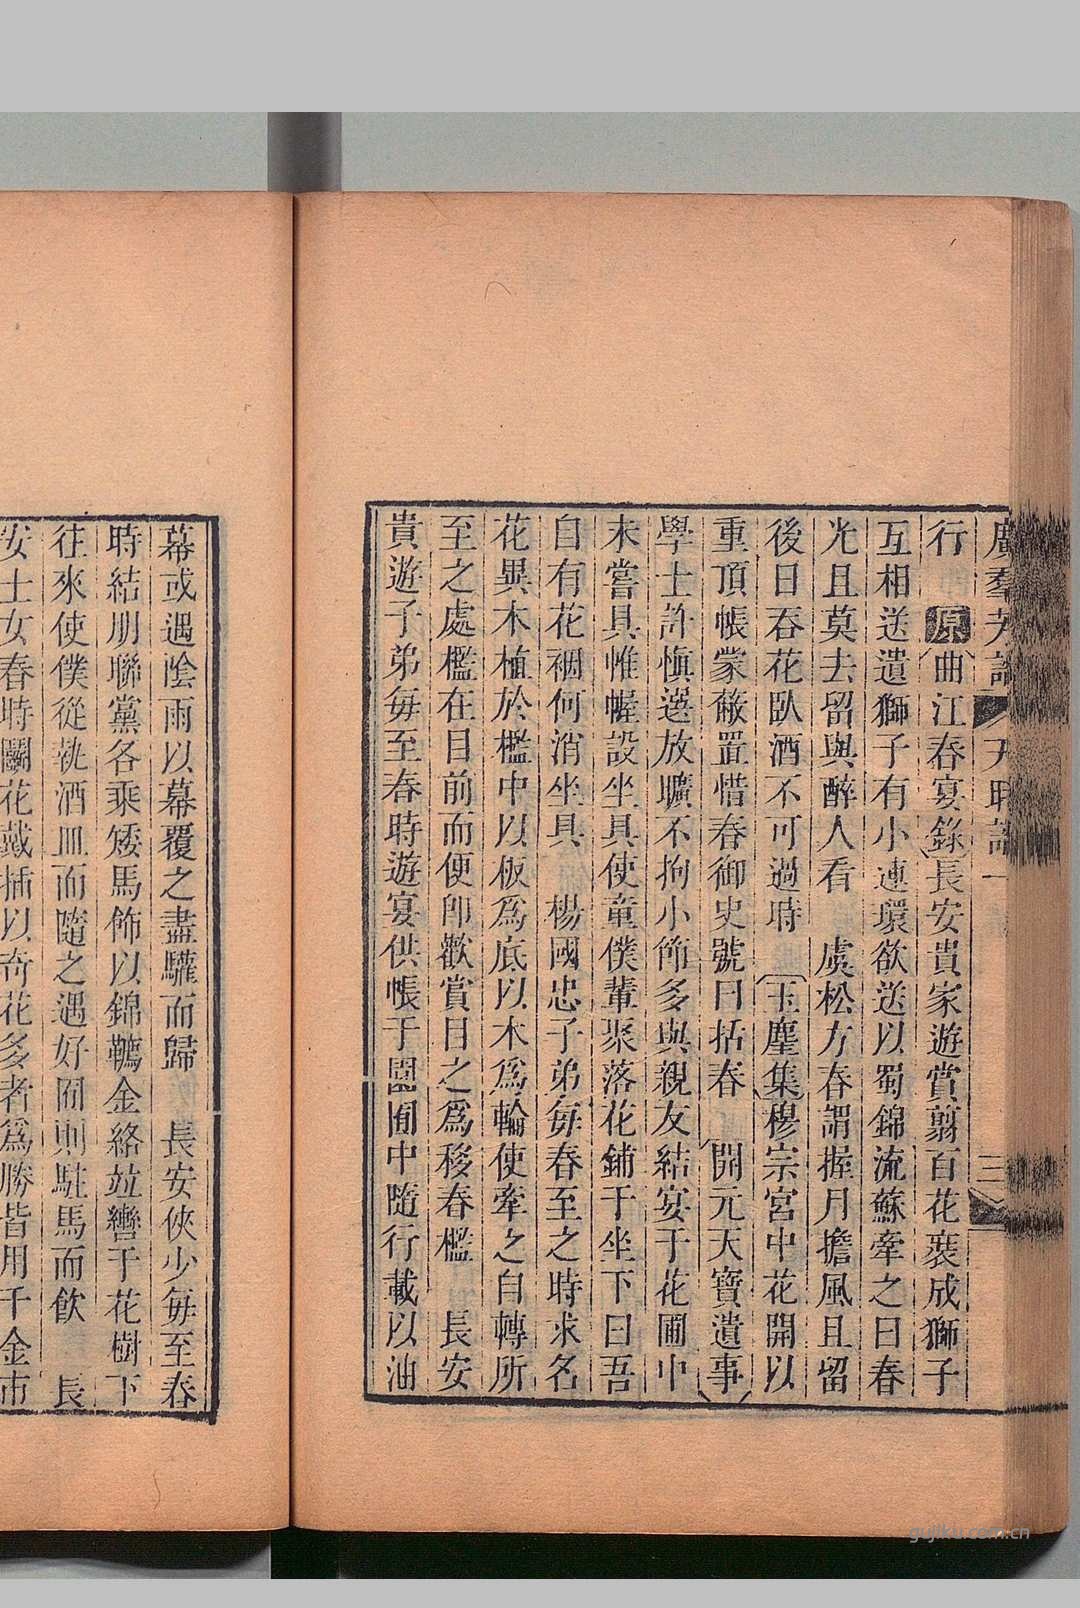 廣羣芳譜 天時譜一 三
行 原 曲江春宴錄 長安貴家遊賞翦百花裛成獅子
互相送遺獅子有小連環欲送以蜀錦流蘇牽之曰春
光且莫去留與醉人看 虞松方春謂握月擔風且留
後日吞花臥酒不可過時 玉麈集 穆宗宮中花開以
重頂帳蒙蔽置惜春御史號曰括春 開元天寶遺事
學士許愼選放曠不拘小節多與親友結宴于花圃中
未嘗具帷幄設坐具使童僕輩聚落花鋪于坐下曰吾
自有花裀何消坐具 楊國忠子弟每春至之時求名
花異木植於檻中以板爲底以木爲輪使牽之自轉所
至之處檻在目前而便卽歡賞目之爲移春檻 長安
貴遊子弟每至春時遊宴供帳于園圃中隨行載以油
幕或遇陰雨以幕覆之盡驩而歸 長安俠少每至春
時結朋聯黨各乘矮馬飾以錦韉金絡並轡于花樹下
往來使僕從執酒皿而隨之遇好囿則駐馬而飮 長
安士女春時鬭花戴插以奇花多者爲勝皆用千金市
gujiku.com.cn